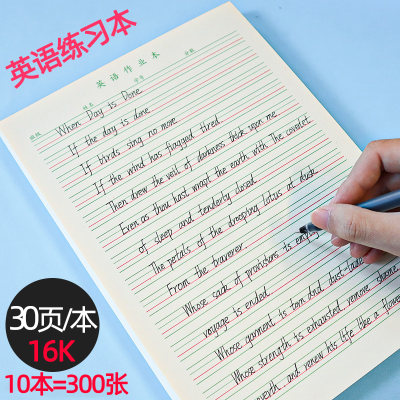 英语练习本
英语作业本
班级 姓名 学号 分数
When Day is Done
If the day is done
If birds sing no more
If the wind has flagged tired
Then draw the veil of darkness thick upon me
Even as thou hast wrapt the earth with The coverlet
of sleep and tenderly closed
The petals of the drooping lotus at dusk
From the traverer
Whose sack of provisions is empty
voyage is ended
Whose garment is torn and dust-laden
Whose strength is exhausted remove shame
and renew his life like a flower
30页/本
16K
10本=300张